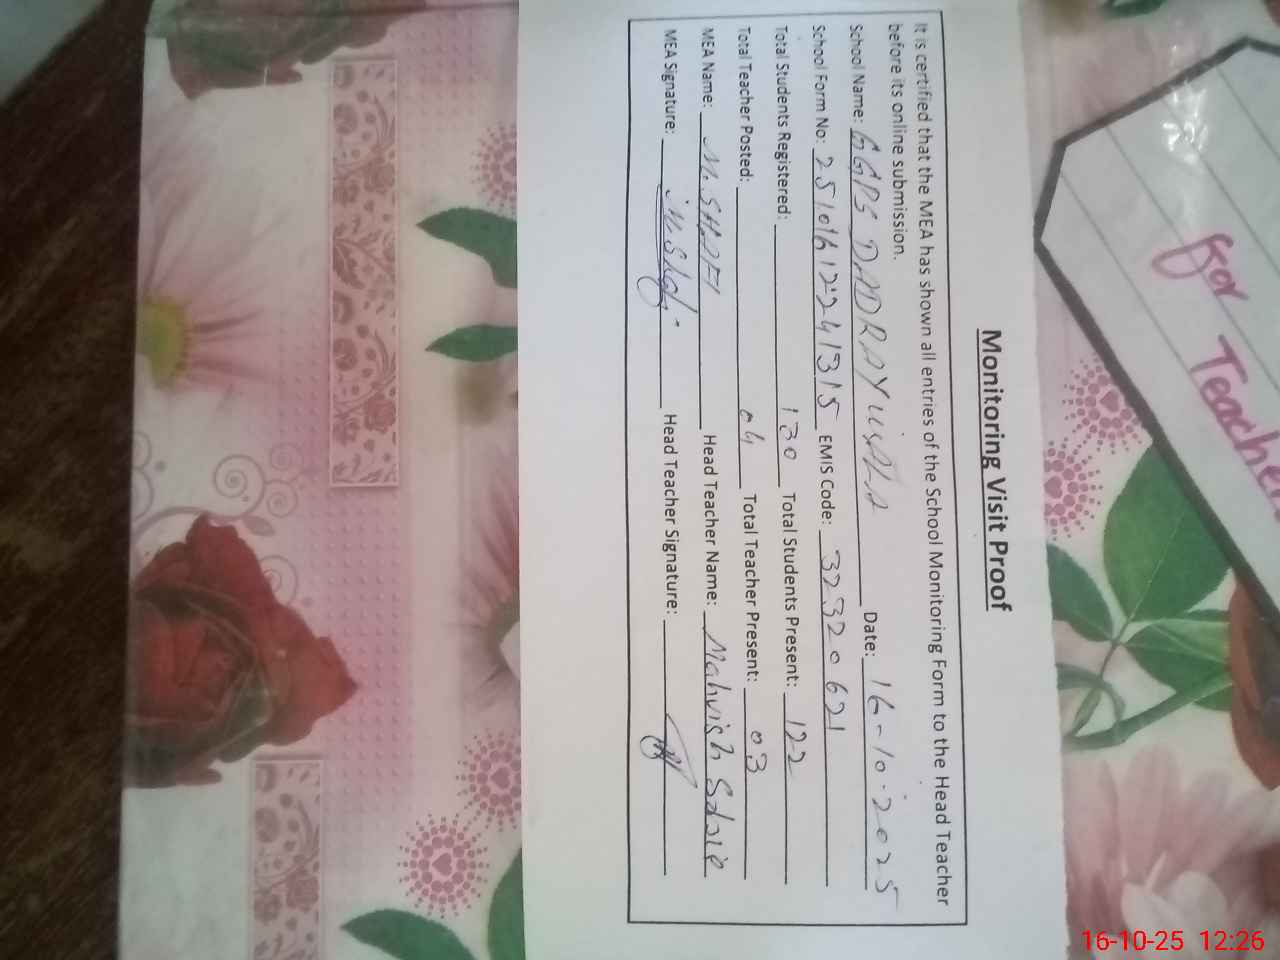 Monitoring Visit Proof
It is certified that the MEA has shown all entries of the School Monitoring Form to the Head Teacher
before its online submission.
School Name: GGPS DADRAY WALA Date: 16-10-2025
School Form No: EMIS Code: 32320621
Total Students Registered: 130 Total Students Present: 122
Total Teacher Posted: 04 Total Teacher Present: 03
MEA Name: M. SHAFI Head Teacher Name: Mahvish
MEA Signature: Head Teacher Signature:
for Teache
16-10-25 12:26